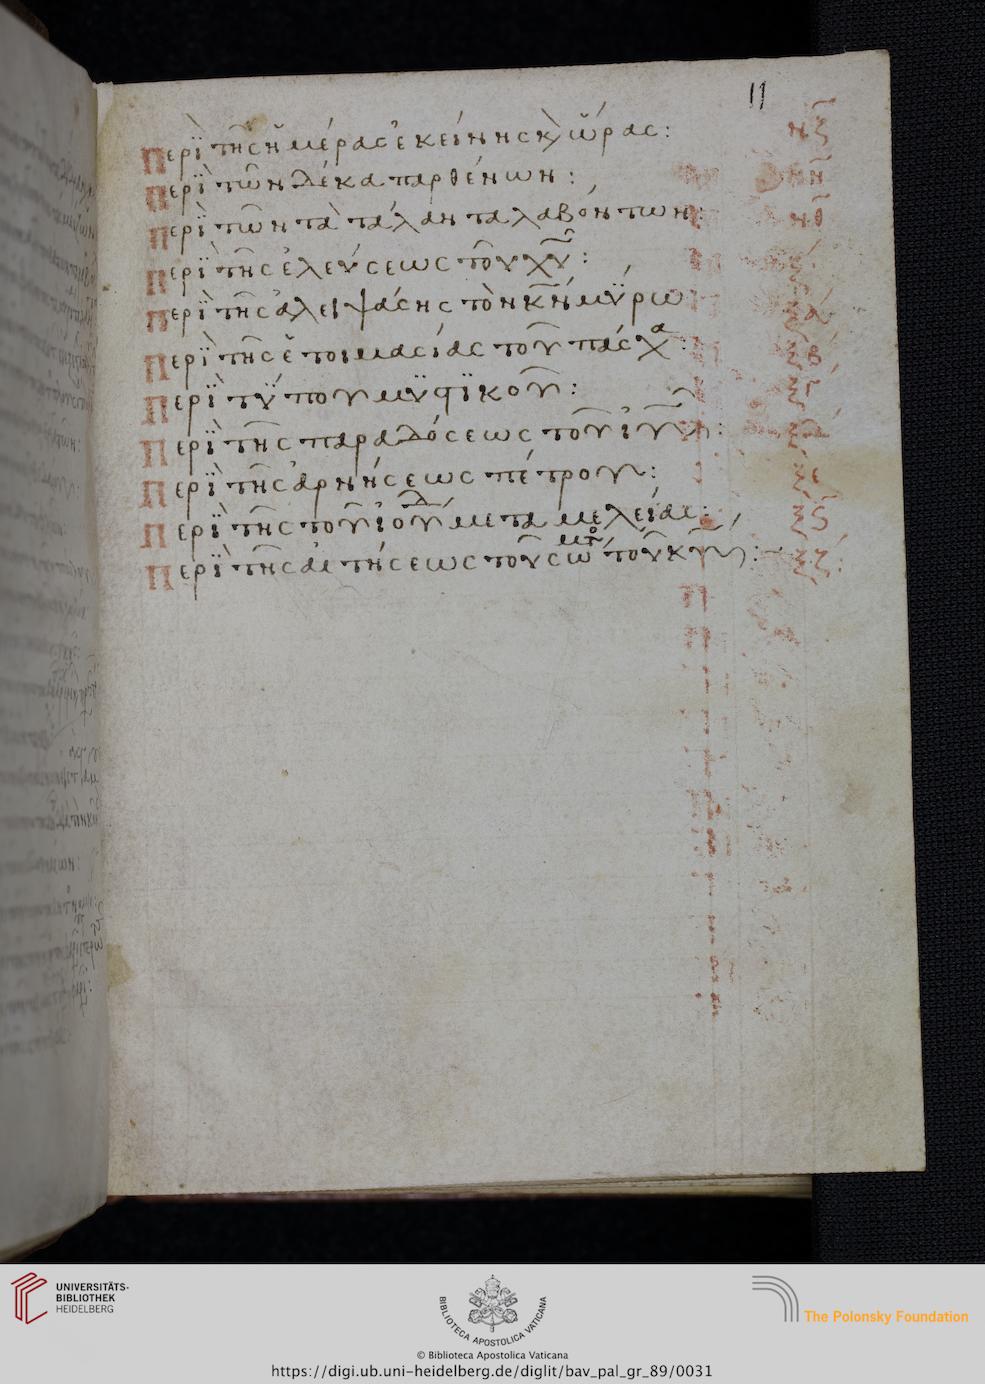 11
Περὶ τῆς ἡμέρας ἐκείνης κ(αὶ) ὥρας: νζ
Περὶ τῶν δέκα παρθένων: νη
Περὶ τῶν τὰ τάλαντα λαβόντων: νθ
Περὶ τῆς ἐλεύσεως τοῦ χυ̅:
Περὶ τῆς ἀλειψάσης τὸν κν̅ μύρω ξα
Περὶ τῆς ἑτοιμασίας τοῦ πάσχα: ξβ
Περὶ τύπου μυστικοῦ: ξγ
Περὶ τῆς παραδόσεως τοῦ ιυ̅: ξδ
Περὶ τῆς ἀρνήσεως πέτρου: ξε
Περὶ τῆς τοῦ ἰούδ μεταμελείας: ξϛ
Περὶ τῆς αἰτήσεως τοῦ σώματος τοῦ κυ̅: ξζ
UNIVERSITÄTS-
BIBLIOTHEK
HEIDELBERG
BIBLIOTECA APOSTOLICA VATICANA
The Polonsky Foundation
© Biblioteca Apostolica Vaticana
https://digi.ub.uni-heidelberg.de/diglit/bav_pal_gr_89/0031